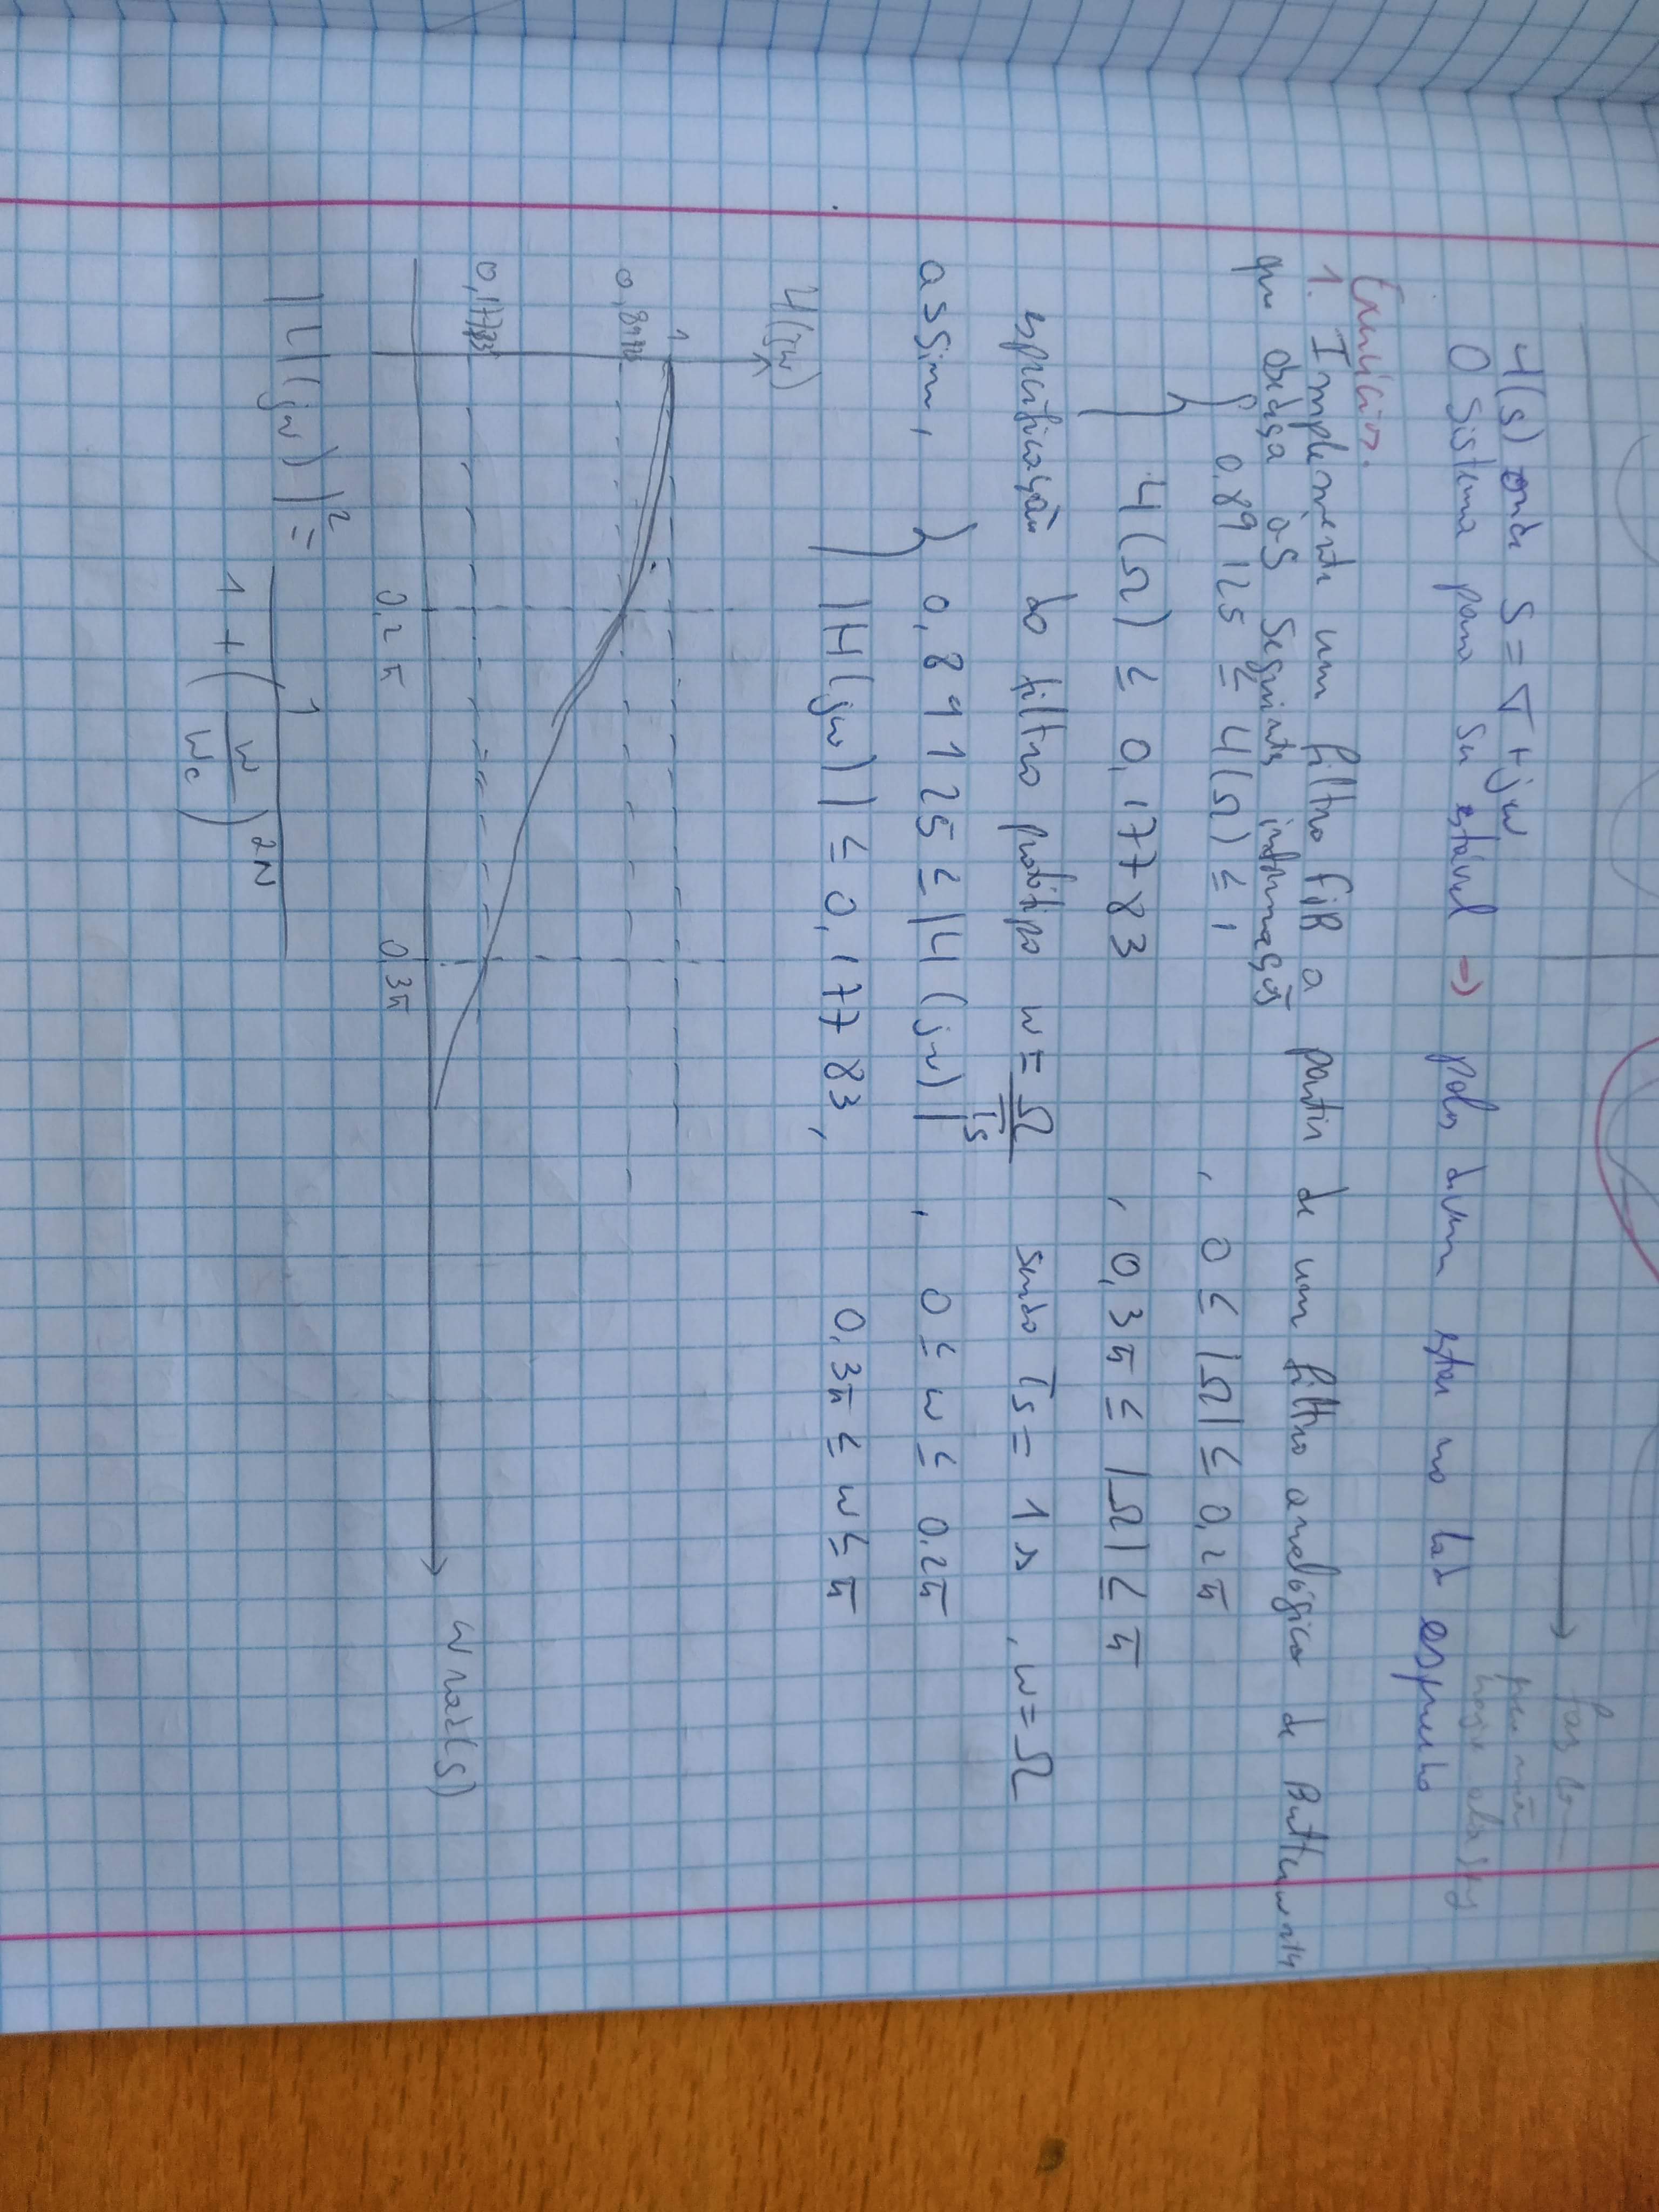 H(s) onde S = σ + jw
O Sistema para ser estável => polos devem estar no lado esquerdo
Exercícios.
1. Implemente um filtro FiR a partir de um filtro analógico de Butterworth
que obdeça às Seguintes informações
{ 0,89125 ≤ H(Ω) ≤ 1 , 0 ≤ |Ω| ≤ 0,2π
H(Ω) ≤ 0,17783 , 0,3π ≤ |Ω| ≤ π
especificação do filtro protótipo w = Ω/Ts sendo Ts = 1s , w = Ω
assim, { 0,89125 ≤ |H(jw)| , 0 ≤ w ≤ 0,2π
|H(jw)| ≤ 0,17783, 0,3π ≤ w ≤ π
H(jw)
1
0,17783
0,2π 0,3π w rad(s)
|H(jw)|² = 1 / (1 + (w/wc)^2N)